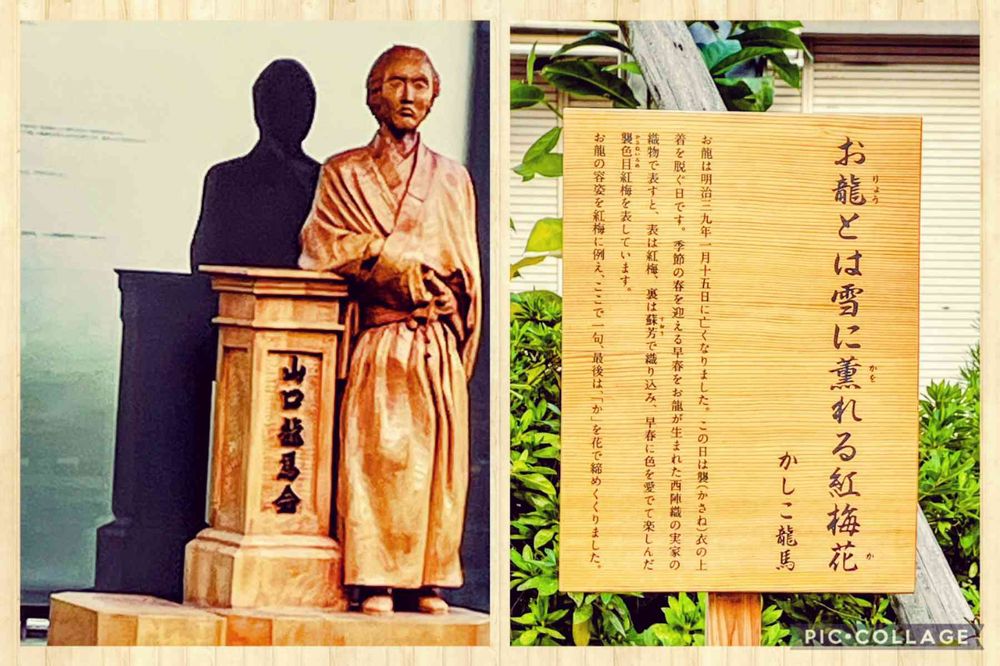 山口龍馬会
お龍とは雪に薫れる紅梅花
りょう
かを
か
かしこ龍馬
お龍は明治三九年一月十五日に亡くなりました。この日は襲(かさね)衣の上
着を脱ぐ日です。季節の春を迎える早春をお龍が生まれた西陣織の実家の
織物で表すと、表は紅梅、裏は蘇芳で織り込み、早春に色を愛でて楽しんだ
すおう
襲色目紅梅を表しています。
かさねいろめ
お龍の容姿を紅梅に例え、ここで一句、最後は「か」を花で締めくくりました。
PIC•COLLAGE